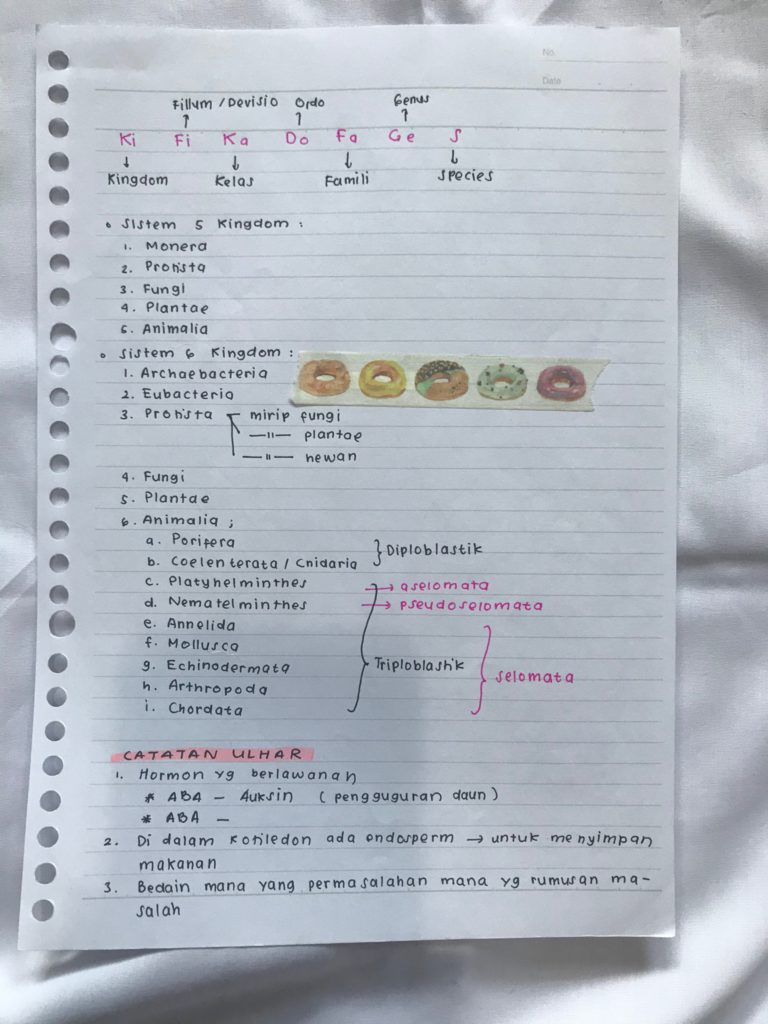 No.
Date
Fillum / Devisio Ordo Genus
Ki Fi Ka Do Fa Ge S
Kingdom Kelas Famili Species
• Sistem 5 Kingdom :
1. Monera
2. Protista
3. Fungi
4. Plantae
5. Animalia
• Sistem 6 Kingdom :
1. Archaebacteria
2. Eubacteria
3. Protista mirip fungi
—||— plantae
—||— hewan
4. Fungi
5. Plantae
6. Animalia ;
a. Porifera
Diploblastik
b. Coelenterata / Cnidaria
c. Platyhelminthes → aselomata
d. Nematelminthes → pseudoselomata
e. Annelida
f. Mollusca
g. Echinodermata Triploblastik selomata
h. Arthropoda
i. Chordata
CATATAN ULHAR
1. Hormon yg berlawanan
* ABA – Auksin ( pengguguran daun )
* ABA –
2. Di dalam kotiledon ada endosperm → untuk menyimpan
makanan
3. Bedain mana yang permasalahan mana yg rumusan ma-
salah